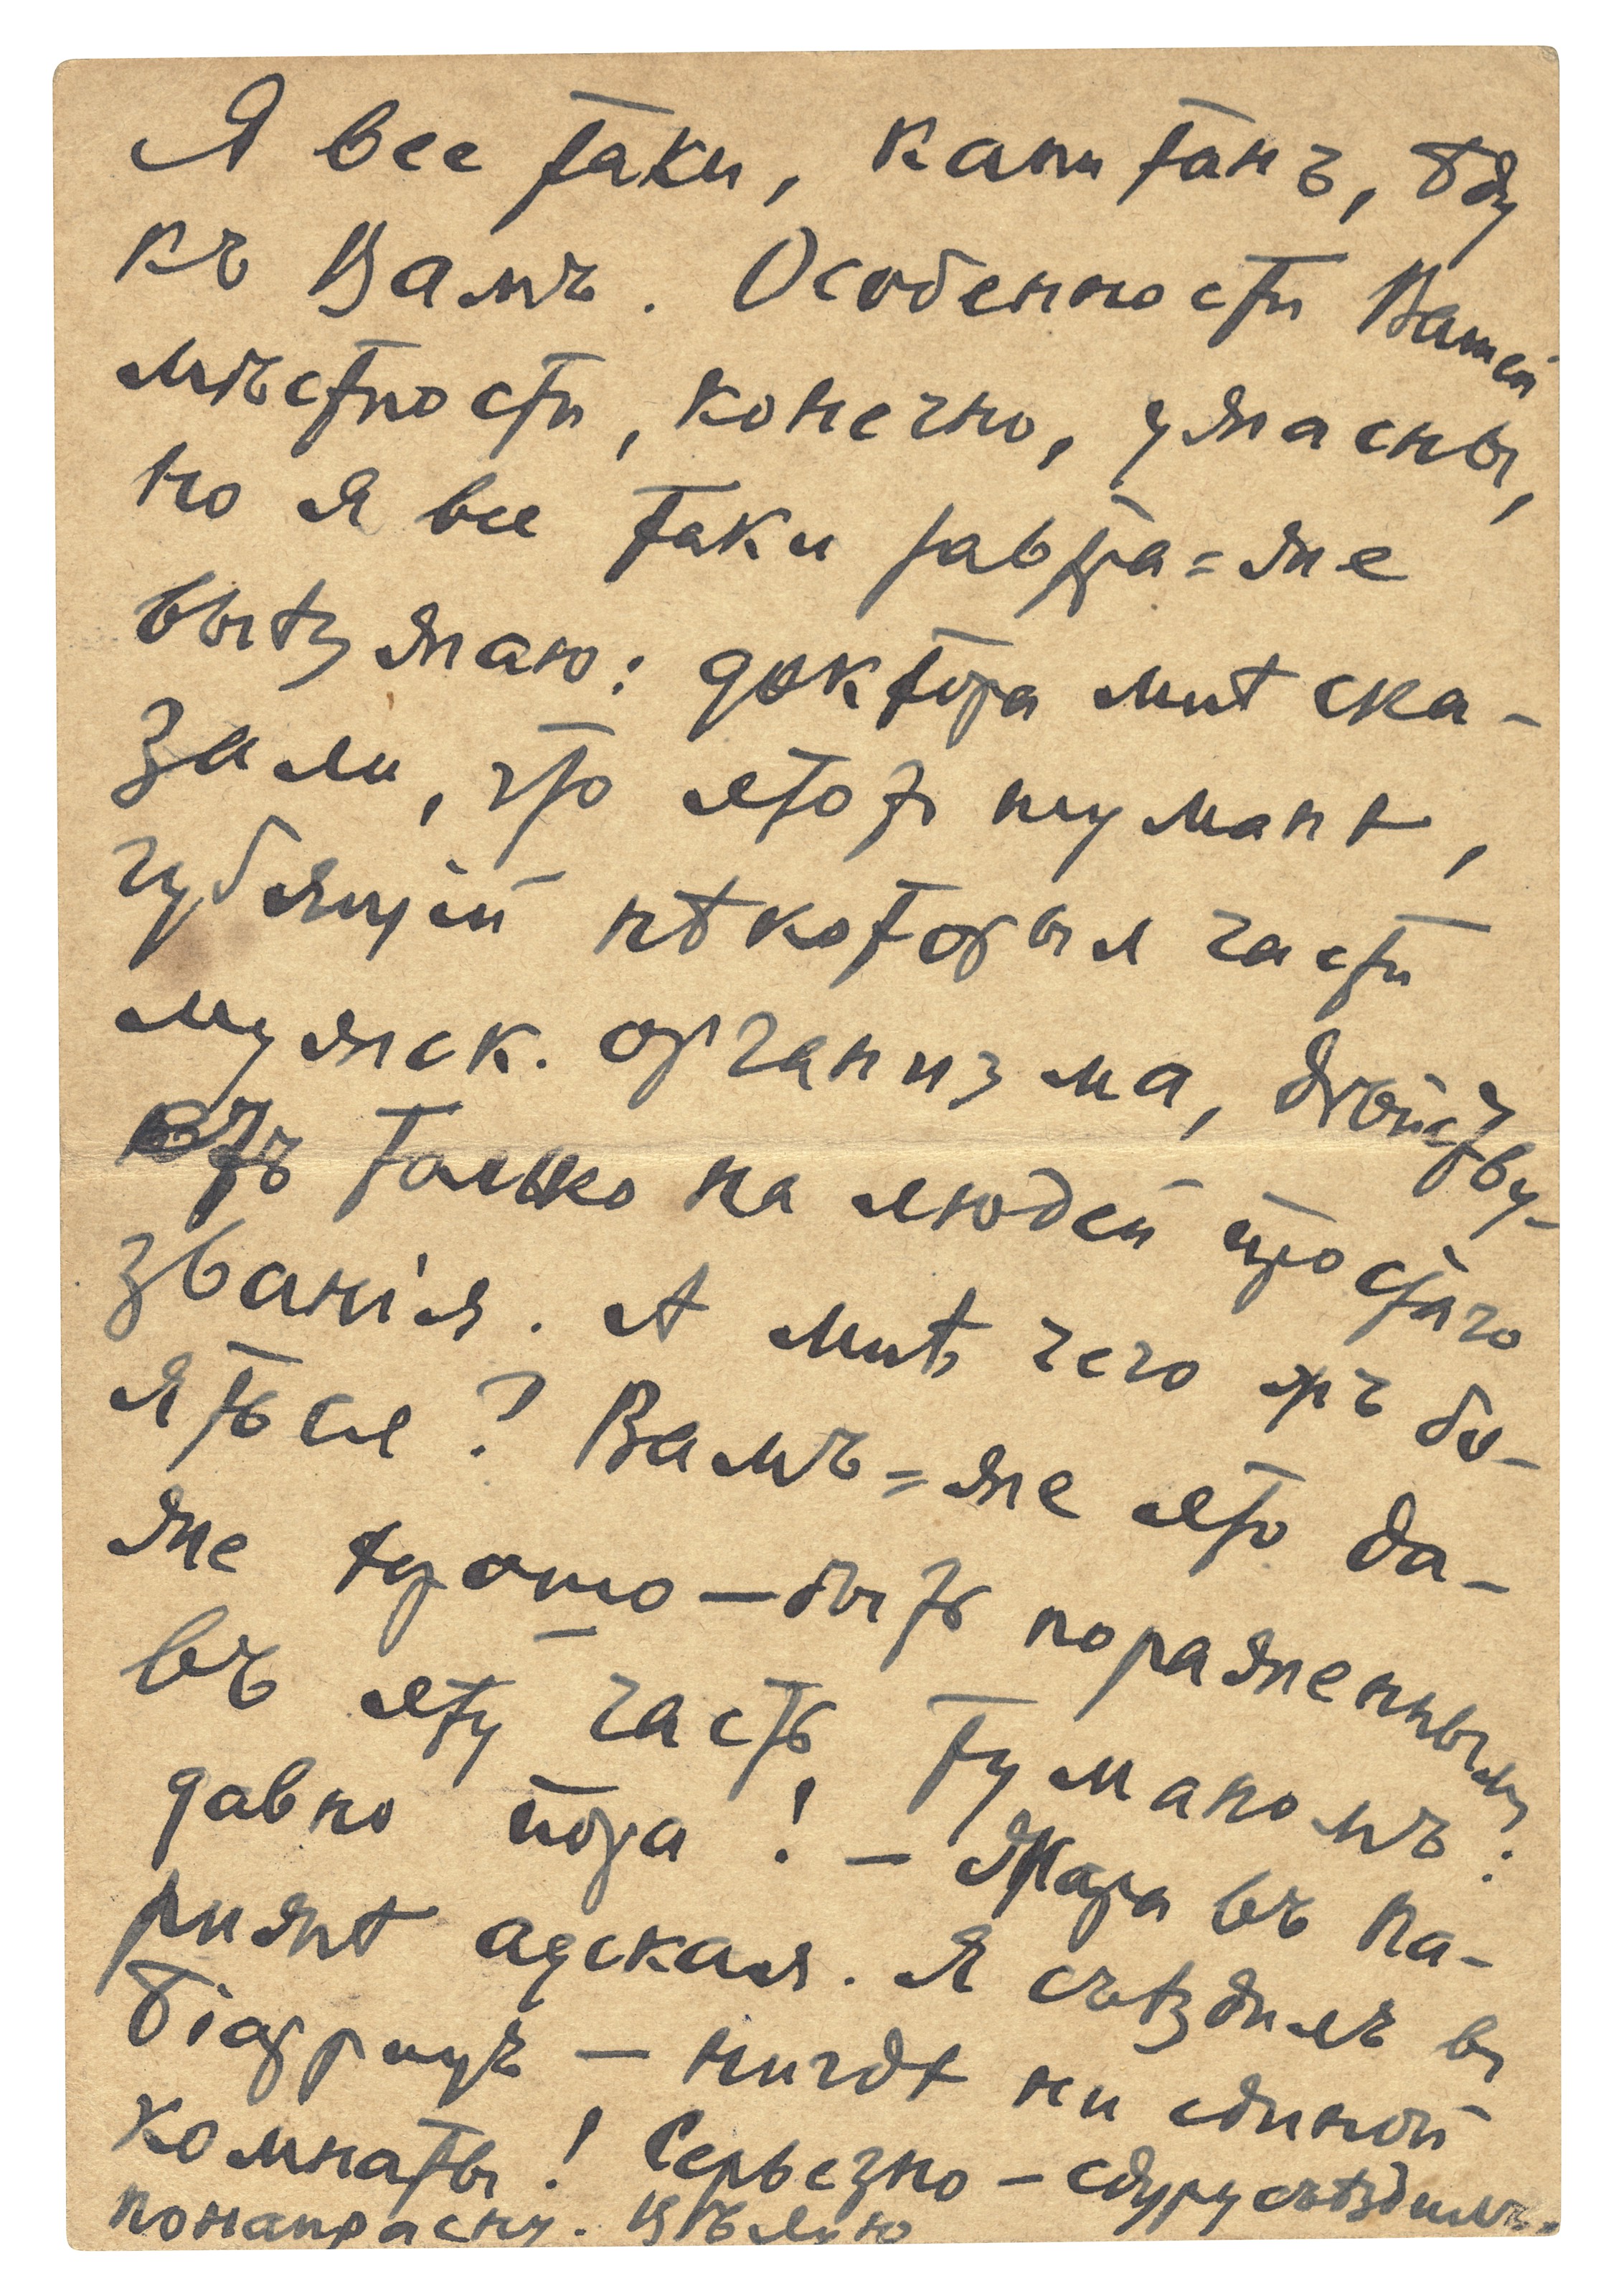 Я все таки, капитанъ, ѣду
къ Вамъ. Особенности Вашей
мѣстности, конечно, ужасны,
но я все таки завтра=же
выѣзжаю: доктора мнѣ ска-
зали, что этотъ туманъ,
губящій нѣкоторыя части
мужск. организма, дѣйству-
етъ только на людей простаго
званія. А мнѣ чего жъ бо-
яться? Вамъ=же это да-
же хорошо — быть пораженнымъ
въ эту часть туманомъ:
давно пора! — Жара въ Па-
рижѣ адская. Я съѣздилъ въ
Біаррицъ — нигдѣ ни единой
комнаты! Серьезно — сдуру съѣздилъ.
понапрасну. Цѣлую